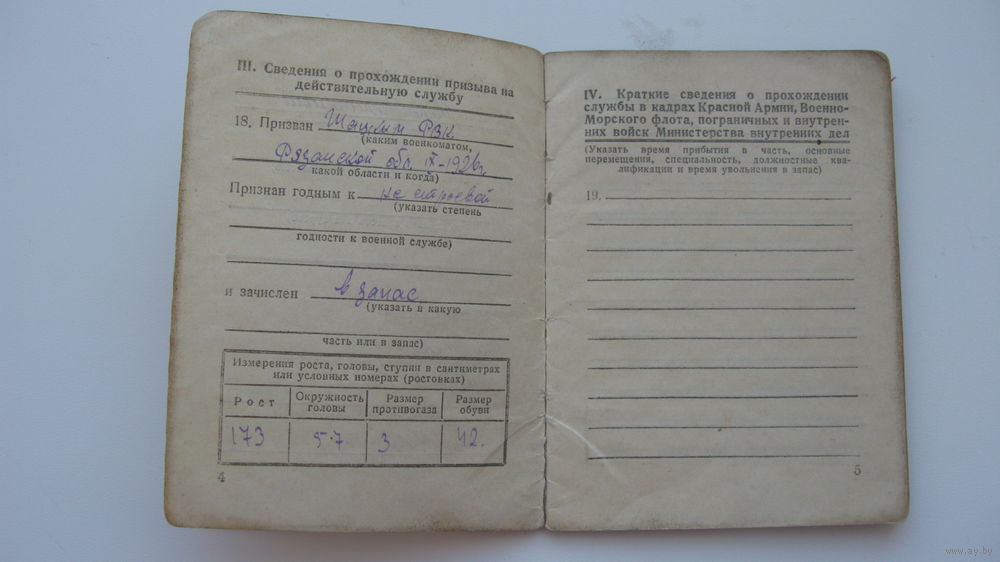 III. Сведения о прохождении призыва на
действительную службу
18. Призван Шацким РВК
(каким военкоматом,
Рязанской обл. IX-1926 г.
какой области и когда)
Признан годным к не строевой
(указать степень
годности к военной службе)
и зачислен в запас
(указать в какую
часть или в запас)
Измерения роста, головы, ступни в сантиметрах
или условных номерах (ростовках)
Рост Окружность головы Размер противогаза Размер обуви
173 57 3 42.
4
IV. Краткие сведения о прохождении
службы в кадрах Красной Армии, Военно-
Морского флота, пограничных и внутрен-
них войск Министерства внутренних дел
(Указать время прибытия в часть, основные
перемещения, специальность, должностные ква-
лификации и время увольнения в запас)
19.
5
www.ay.by